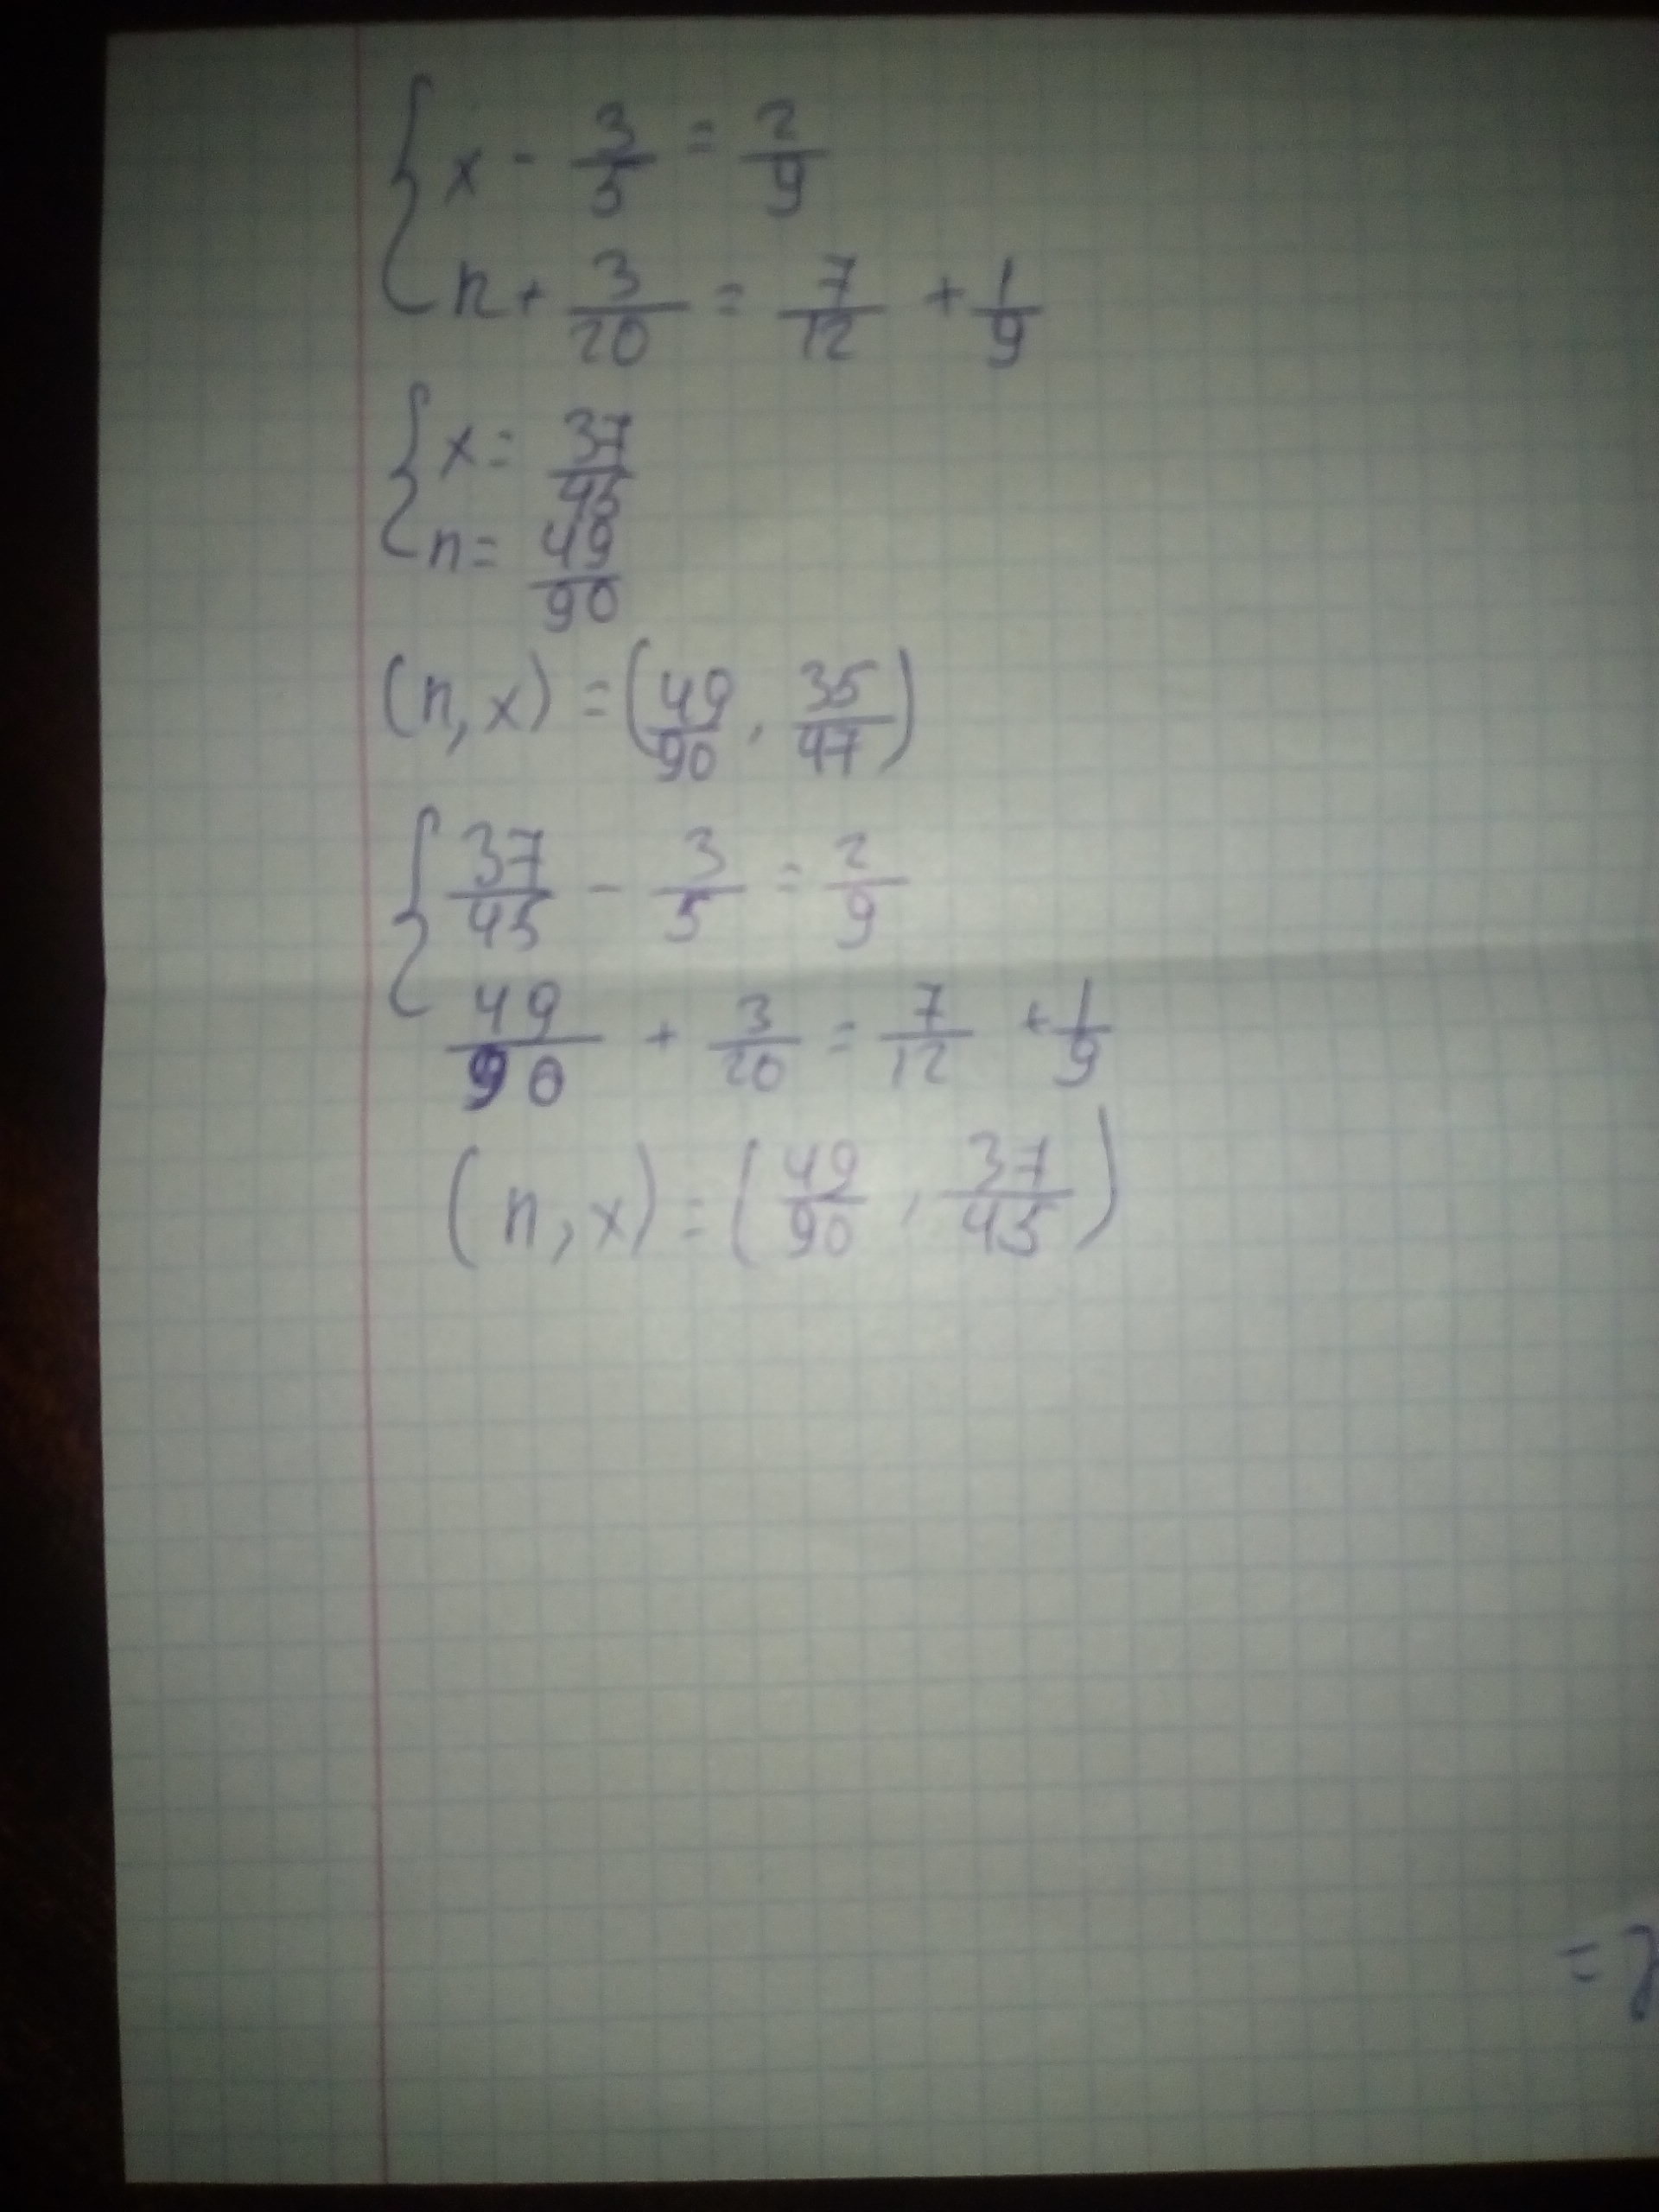 { x - 3/5 = 2/9
n + 3/20 = 7/12 + 1/9
{ x = 37/45
n = 49/90
(n, x) = (49/90, 35/47)
{ 37/45 - 3/5 = 2/9
49/90 + 3/20 = 7/12 + 1/9
(n, x) = (49/90, 37/45)
=